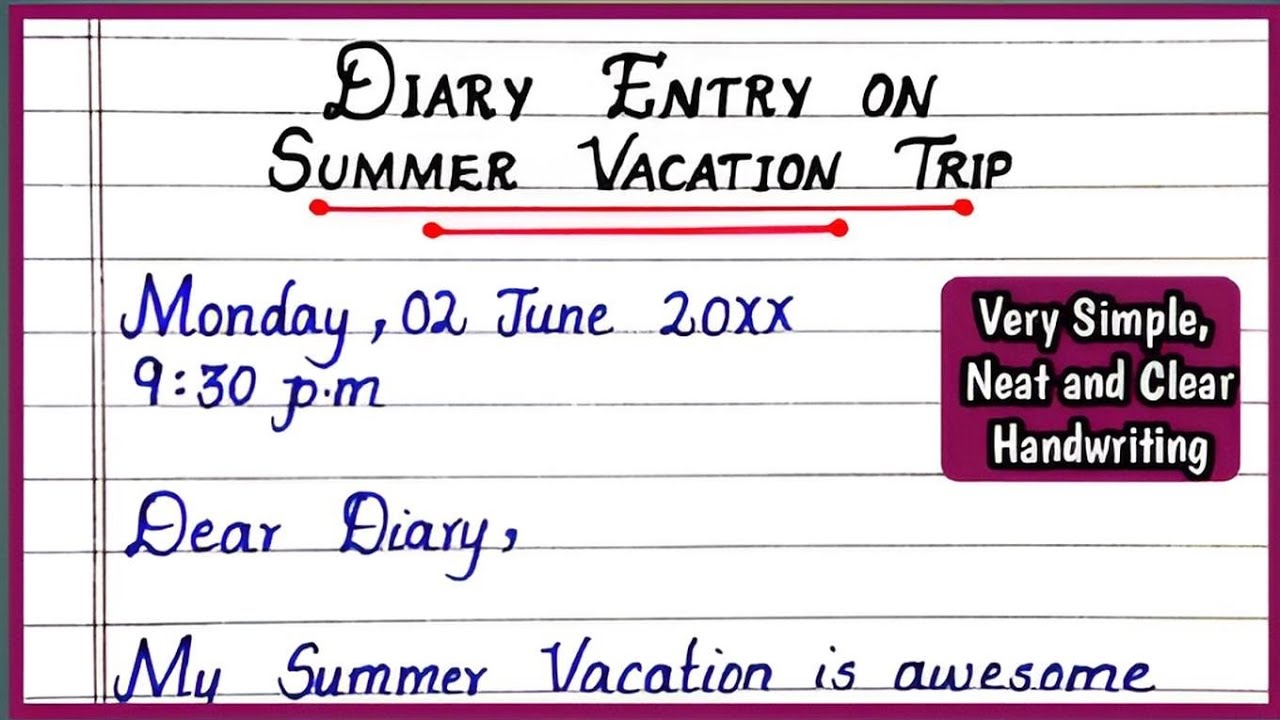 DIARY ENTRY ON
SUMMER VACATION TRIP
Monday, 02 June 20xx
9:30 p.m
Very Simple,
Neat and Clear
Handwriting
Dear Diary,
My Summer Vacation is awesome